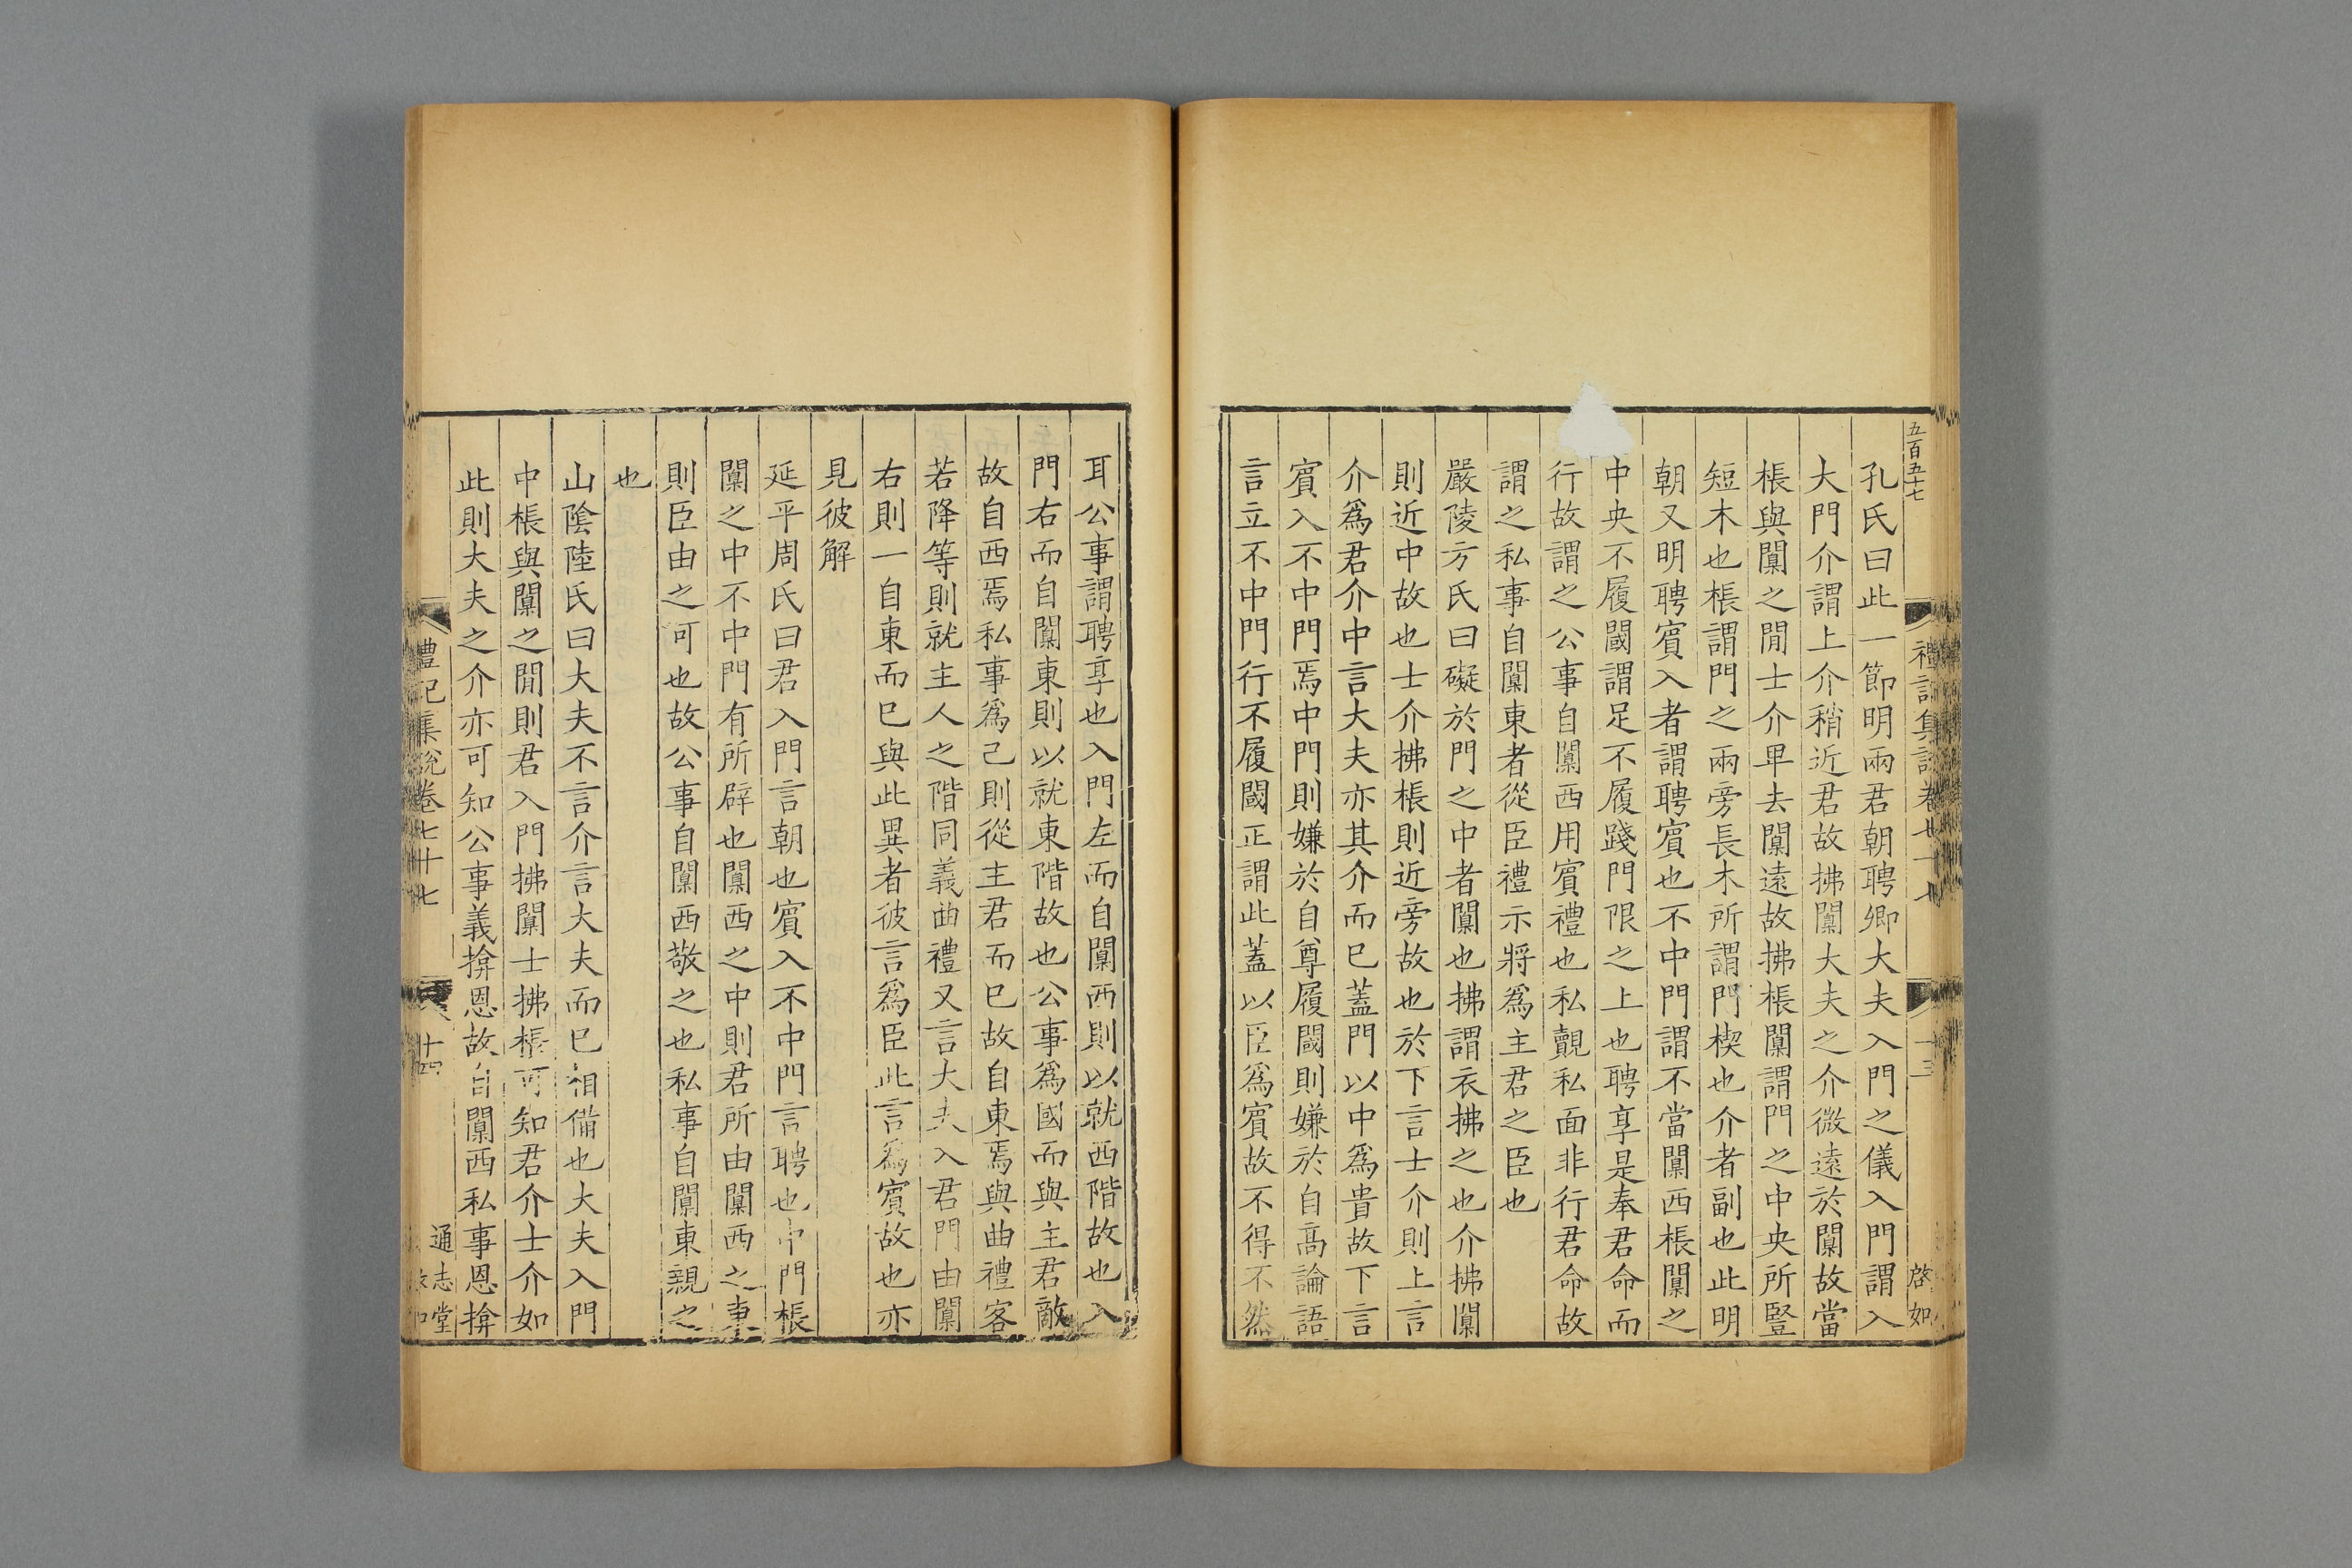 五百五十七
禮記集說卷七十七
十三
啓如
孔氏曰此一節明兩君朝聘卿大夫入門之儀入門謂入
大門介謂上介稍近君故拂闑大夫之介微遠於闑故當
棖與闑之閒士介卑去闑遠故拂棖闑謂門之中央所豎
短木也棖謂門之兩旁長木所謂門楔也介者副也此明
朝又明聘賓入者謂聘賓也不中門謂不當闑西棖闑之
中央不履閾謂足不履踐門限之上也聘享是奉君命而
行故謂之公事自闑西用賓禮也私覿私面非行君命故
謂之私事自闑東者從臣禮示將為主君之臣也
嚴陵方氏曰礙於門之中者闑也拂謂衣拂之也介拂闑
則近中故也士介拂棖則近旁故也於下言士介則上言
介為君介中言大夫亦其介而已蓋門以中為貴故下言
賓入不中門焉中門則嫌於自尊履閾則嫌於自高論語
言立不中門行不履閾正謂此蓋以臣為賓故不得不然
耳公事謂聘享也入門左而自闑西則以就西階故也入
門右而自闑東則以就東階故也公事為國而與主君敵
故自西焉私事為己則從主君而已故自東焉與曲禮客
若降等則就主人之階同義曲禮又言大夫入君門由闑
右則一自東而已與此異者彼言為臣此言為賓故也亦
見彼解
延平周氏曰君入門言朝也賓入不中門言聘也中門棖
闑之中不中門有所辟也闑西之中則君所由闑西之東
則臣由之可也故公事自闑西敬之也私事自闑東親之
也
山陰陸氏曰大夫不言介言大夫而已相備也大夫入門
中棖與闑之閒則君入門拂闑士拂棖可知君介士介如
此則大夫之介亦可知公事義揜恩故自闑西私事恩揜
禮記集說卷七十七
十四
通志堂